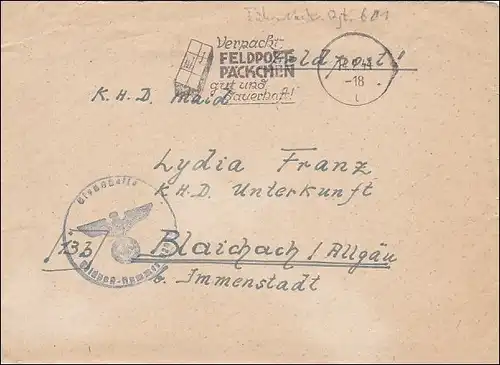 Verpackt
FELDPOST
PÄCKCHEN
gut und
dauerhaft!
Feldpost!
-18
K.H.D. Maid
Lydia Franz
K.H.D. Unterkunft
13b Blaichach / Allgäu
b. Immenstadt
Dienststelle